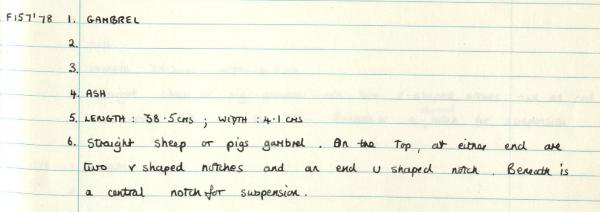 F157'78 1. GAMBREL
2.
3.
4. ASH
5. LENGTH : 38.5 CMS ; WIDTH : 4.1 CMS
6. Straight sheep or pigs gambrel. On the top, at either end are
two v shaped notches and an end U shaped notch. Beneath is
a central notch for suspension.